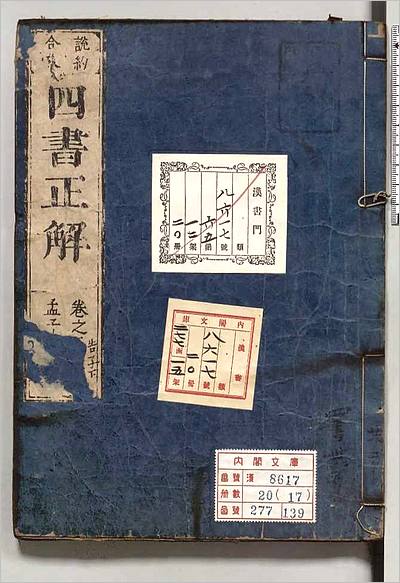 說約
合參
四書正解
卷之
孟子
告子下
漢書門
類
八六一七號
六五函
一二架
二〇冊
內閣文庫
漢書
類
八六一七號
二〇冊
內閣文庫
番號 漢 8617
冊數 20(17)
函號 277 139